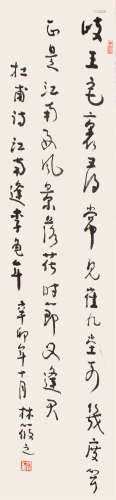 岐王宅裏尋常見崔九堂前幾度聞
正是江南好風景落花時節又逢君
杜甫詩江南逢李龜年 辛卯年十月 林筱之